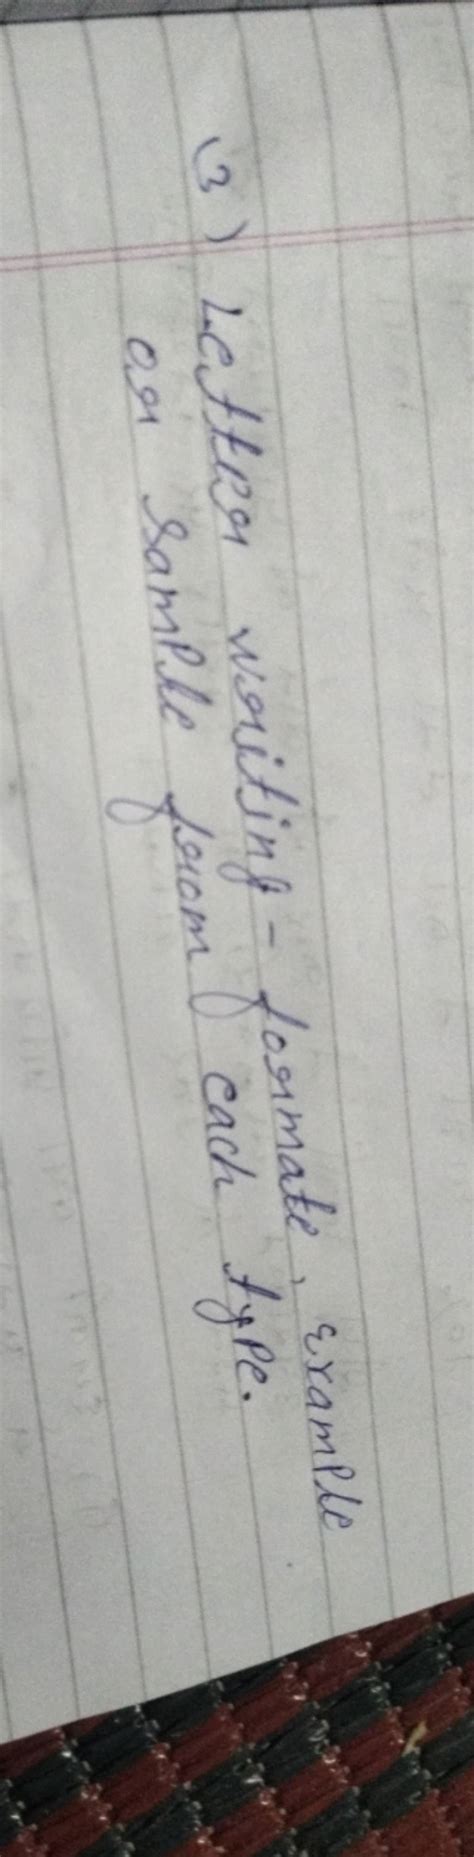 (3) Letter writing - formate, example
or sample from each type.